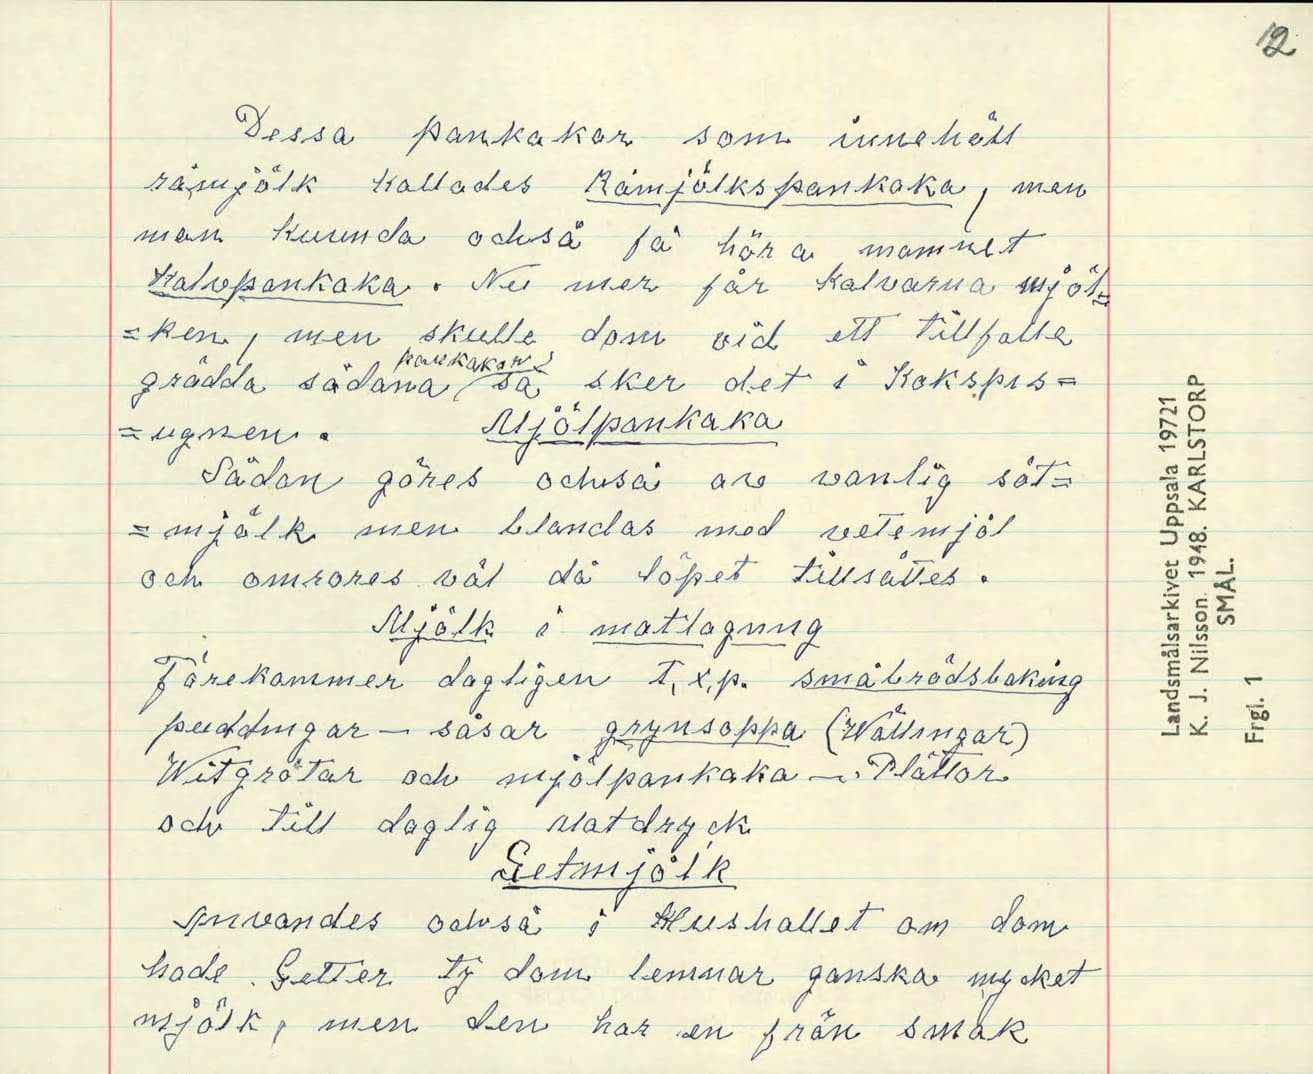 12
Dessa pankakor som innehöll
råmjölk kallades Råmjölkspankaka, men
man kuunda också få höra mamnet
Kalvpankaka. Nu mer får kalvarna mjöl=
=ken, men skulle dom vid ett tillfälle
pankakor
grädda sådana så sker det i Kokspis=
=ugnen.
Mjölpankaka
Sådan göres också av vanlig söt=
=mjölk men blandas med vetemjöl
och omrores väl då löpet tillsättes.
Mjölk i matlagning
Förekommer dagligen T,x,p. småbrödsbaking
puddingar - såsar grynsoppa (Wällingar)
Witgrötar och mjölpankaka - Plättor
och till daglig Matdryck
Getmjölk
Anvandes också i Hushallet om dom
hade Getter ty dom lemnar ganska mycket
mjölk, men den har en från smak
Landsmålsarkivet Uppsala 19721
K. J. Nilsson. 1948. KARLSTORP
SMÅL.
Frgl. 1